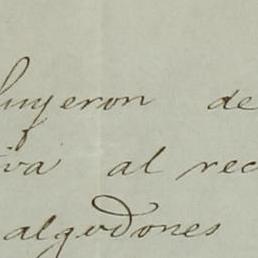 luyeron de
iva al rec
algodones